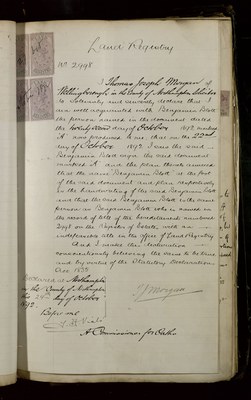 Land Registry
No. 2998
I Thomas Joseph Morgan of
Wellingborough in the County of Northampton Solicitor
do Solemnly and sincerely declare that I
am well acquainted with Benjamin
the person named in the document dated
the twenty second day of October 1892 marked
A now produced to me, that on the 22nd
day of October 1892 I saw the said
Benjamin sign the said document
marked A and the plan thereto annexed
that the name Benjamin at the foot
of the said document and plan respectively
is the handwriting of the said Benjamin
and that the said Benjamin is the same
person as Benjamin named in
the record of title of the hereditaments numbered
on the Register of Estates, with an
indefeasible title in the Office of Land Registry
And I make this declaration
conscientiously believing the same to be true
and by virtue of the Statutory Declarations
Act 1835
Declared at Northampton
in the County of Northampton
this day of October
1892.
Before me
T J Morgan
A Commissioner for Oaths